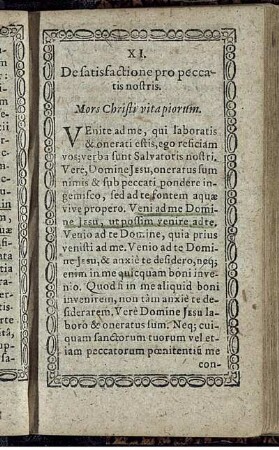 XI.
De satisfactione pro pecca-
tis nostris.
Mors Christi vita piorum.
VEnite ad me, qui laboratis
& onerati estis, ego reficiam
vos; verba sunt Salvatoris nostri.
Vere, Domine Jesu, oneratus sum
nimis & sub peccati pondere in-
gemisco, sed ad te fontem aquæ
vivæ propero. Veni ad me Domi-
ne Jesu, ut possim venire ad te.
Venio ad te Domine, quia prius
venisti ad me. Venio ad te Domi-
ne Jesu, & anxiè te desidero, neq;
enim in me quicquam boni inve-
nio. Quod si in me aliquid boni
invenirem, non tàm anxiè te de-
siderarem. Vere Domine Jesu la-
borò & oneratus sum. Neq; cui-
quam sanctorum tuorum vel et-
iam peccatorum pœnitentiũ me
con-